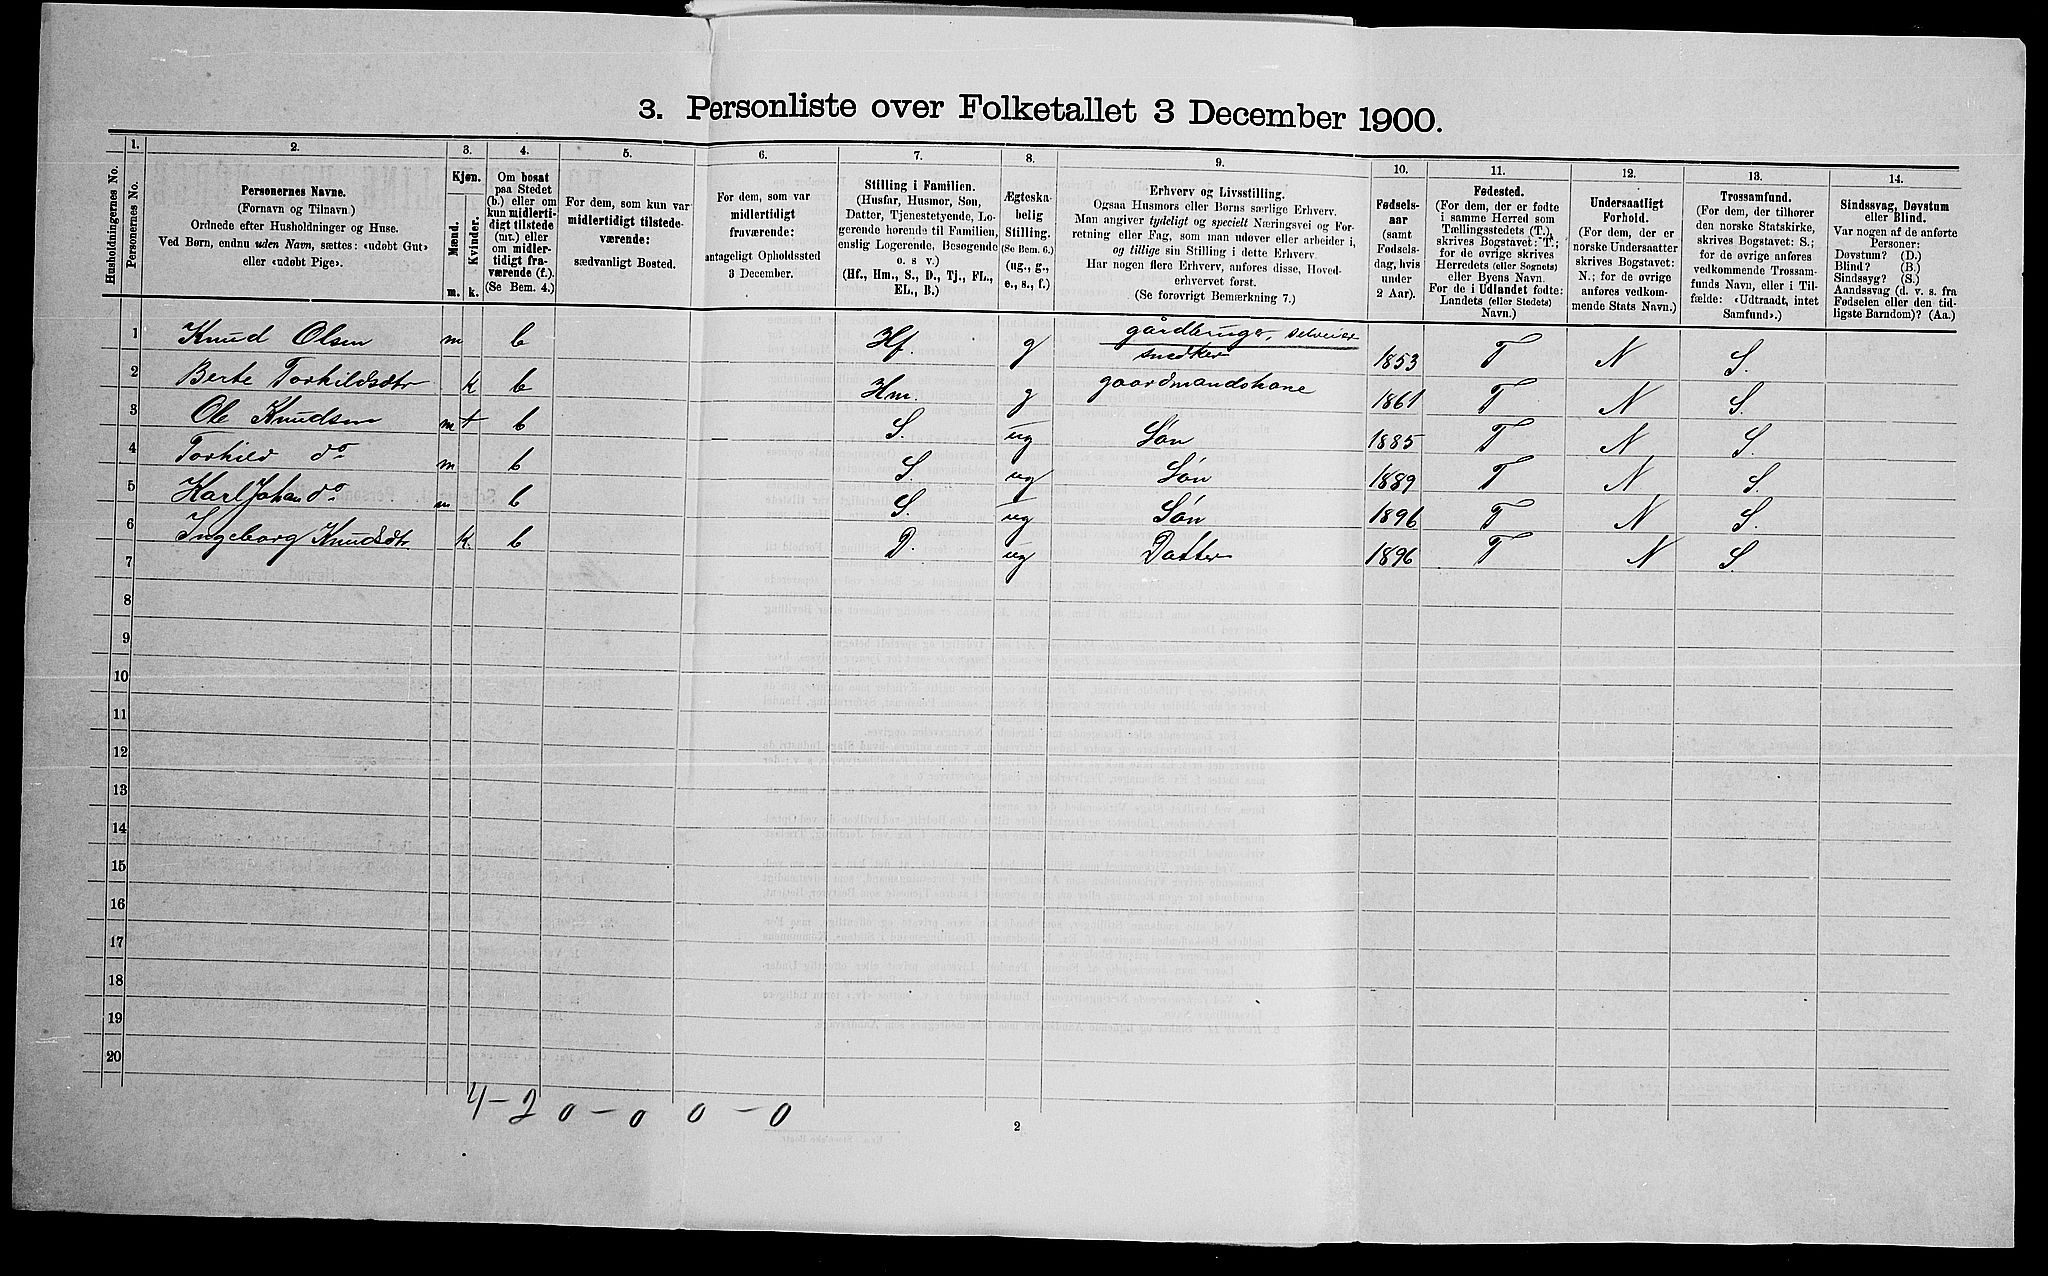 3. Personliste over Folketallet 3 December 1900.
Husholdningernes No.
1.
Personernes No.
2.
Personernes Navne.
(Fornavn og Tilnavn.)
Ordnede efter Husholdninger og Huse.
Ved Børn, endnu uden Navn, sættes: «udøbt Gut»
eller «udøbt Pige».
3.
Kjøn.
Mænd.
Kvinder.
m.
k.
4.
Om bosat
paa Stedet
(b.) eller om
kun midlerti-
digt tilstede
(mt.) eller
om midler-
tidigt fra-
værende (f.).
(Se Bem. 4.)
5.
For dem, som kun var
midlertidigt tilstede-
værende:
sædvanligt Bosted.
6.
For dem, som var
midlertidigt
fraværende:
antageligt Opholdssted
3 December.
7.
Stilling i Familien.
(Husfar, Husmor, Søn,
Datter, Tjenestetyende, Lo-
gerende hørende til Familien,
enslig Logerende, Besøgende
o. s v.)
(Hf., Hm., S., D., Tj., FL.,
EL., B.)
8.
Ægteska-
belig
Stilling.
(Se Bem. 6.)
(ug., g.,
e., s., f.)
9.
Erhverv og Livsstilling.
Ogsaa Husmors eller Børns særlige Erhverv.
Man angiver tydeligt og specielt Næringsvei og For-
retning eller Fag, som man udøver eller arbeider i,
og tillige sin Stilling i dette Erhverv.
Har nogen flere Erhverv, anføres disse, Hoved-
erhvervet først.
(Se forøvrigt Bemærkning 7.)
10.
Fødsels-
aar
(samt
Fødsels-
dag, hvis
under
2 Aar).
11.
Fødested.
(For dem, der er fødte
i samme Herred som
Tællingsstedets (T.),
skrives Bogstavet: T.;
for de øvrige skrives
Herredets (eller Sognets)
eller Byens Navn.
For de i Udlandet fødte:
Landets (eller Stedets)
Navn.)
12.
Undersaatligt
Forhold.
(For dem, der er
norske Undersaatter
skrives Bogstavet:
N.; for de øvrige
anføres vedkom-
mende Stats Navn.)
13.
Trossamfund.
(For dem, der tilhører
den norske Statskirke,
skrives Bogstavet: S.;
for de øvrige anføres
vedkommende Trossam-
funds Navn, eller i Til-
fælde: «Udtraadt, intet
Samfund».)
14.
Sindssvag, Døvstum
eller Blind.
Var nogen af de anførte
Personer:
Døvstum? (D.)
Blind? (B.)
Sindssyg? (S.)
Aandssvag (d. v. s. fra
Fødselen eller den tid-
ligste Barndom)? (Aa.)
1 Knud Olsen m b Hf. g gårdbruger, selveier snedker 1853 T N S.
2 Berte Torhildsdtr k b Hm. g gaardmandskone 1861 T N S.
3 Ole Knudsen m + b S. ug Søn 1885 T N S.
4 Torhild do m b S. ug Søn 1889 T N S.
5 Karl Johan do m b S. ug Søn 1896 T N S.
6 Ingeborg Knudsdtr. k b D. ug Datter 1896 T N S.
7
8
9
10
11
12
13
14
15
16
17
18
19
20
4 – 2 0 – 0 0 – 0
2